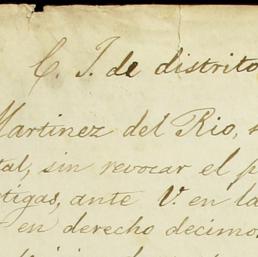 C. J. de distrito
Martinez del Rio,
tal, sin revocar el
ante V. en la
en derecho decimos